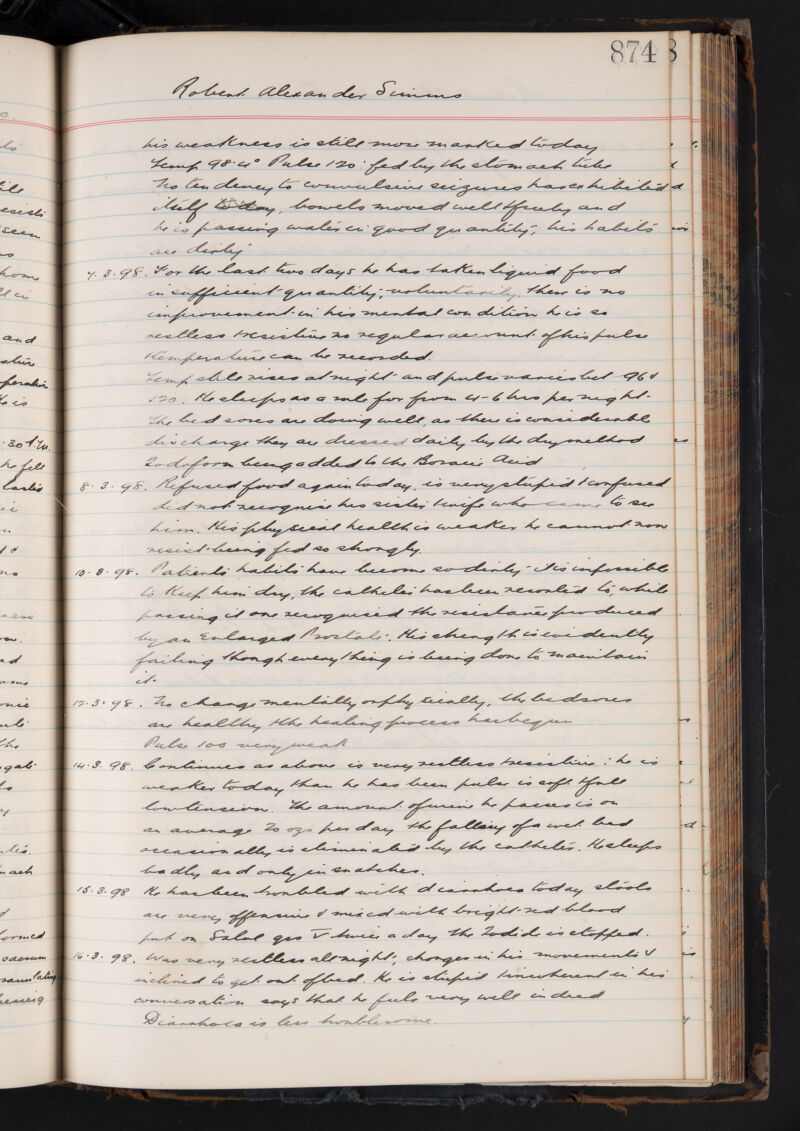 874
Robert Alexander Simms
his weakness is still more marked today
Temp 98.4° Pulse 120. fed by the stomach tube
No tendency to convulsive seizures has exhibited
itself to day, bowels moved well & freely and
he is passing water in good quantity; his habits
are dirty
7.3.98. For the last two days he has taken liquid food
in sufficient quantity, voluntarily, there is no
improvement in his mental condition he is so
restless & resistive no regular account of his pulse
& temperature can be recorded.
Temp still rises at night and pulse varies bet 96 &
120. He sleeps as a rule for from 4-6 hrs per night.
The bed sores are doing well, as there is considerable
discharge they are dressed daily by the dry method
Iodoform being added to the Boracic Acid
8.3.98. Refused food again today, is very stupid & confused
did not recognise his sister & wife who came to see
him. His physical health is weaker he cannot now
resist being fed so strongly.
10.3.98. Patients habits have become so dirty it is impossible
to keep him dry, the catheter has been resorted to, while
passing it one recognised the resistance produced
by an Enlarged Prostate. His strength is evidently
failing though everything is being done to maintain
it.
12.3.98. No change mentally or physically, the bedsores
are healthy & the healing process has begun
Pulse 100 very weak
14.3.98. Continues as above is very restless & resistive: he is
weaker today than he has been pulse is soft & full
low tension. The amount of urine he passes is on
an average 20 ozs per day the fallacy of a wet bed
occasionally is eliminated by the catheter. He sleeps
badly and only in snatches.
15.3.98 He has been troubled with diarrhoea today stools
are very offensive & mixed with bright red blood
put on Salol grs V twice a day the Iodide is stopped.
16.3.98. Was very restless all night, changes in his movements &
inclined to get out of bed. He is stupid & incoherent in his
conversation says that he feels very well indeed
Diarrhoea is less troublesome.